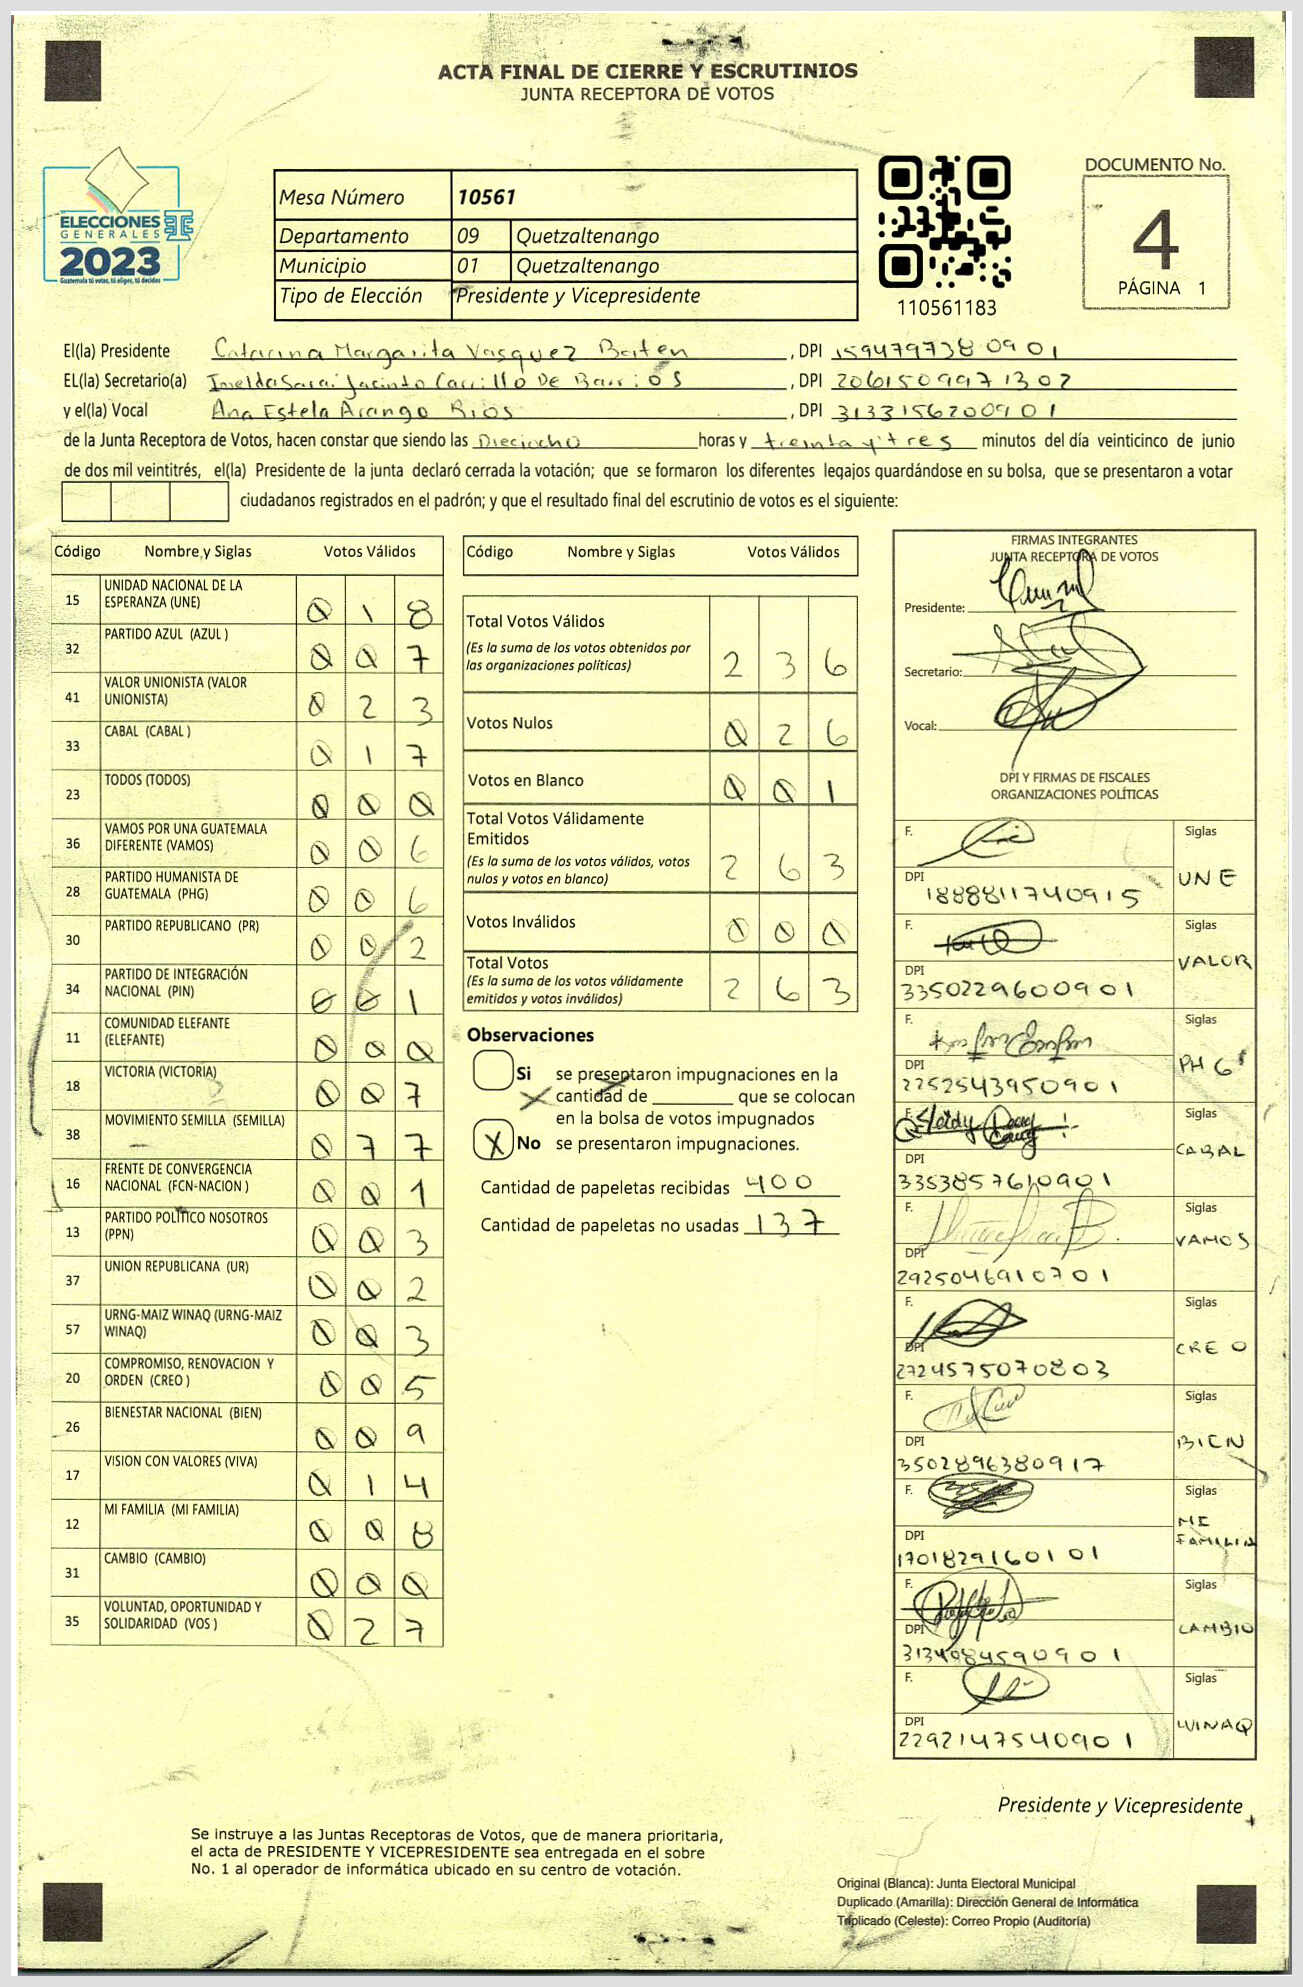 ACTA FINAL DE CIERRE Y ESCRUTINIOS
JUNTA RECEPTORA DE VOTOS
ELECCIONES
GENERALES
2023
Guatemala tú votas, tú eliges, tú decides
Mesa Número 10561
Departamento 09 Quetzaltenango
Municipio 01 Quetzaltenango
Tipo de Elección Presidente y Vicepresidente
110561183
DOCUMENTO No.
4
PÁGINA 1
El(la) Presidente Catarina Margarita Vasquez Baten, DPI 1594797380901
EL(la) Secretario(a) Imelda Sarai Jacinto Carrillo De Barrios, DPI 2061509971302
y el(la) Vocal Ana Estela Arango Rios, DPI 3133156200901
de la Junta Receptora de Votos, hacen constar que siendo las Dieciocho horas y treinta y tres minutos del día veinticinco de junio
de dos mil veintitrés, el(la) Presidente de la junta declaró cerrada la votación; que se formaron los diferentes legajos guardándose en su bolsa, que se presentaron a votar
ciudadanos registrados en el padrón; y que el resultado final del escrutinio de votos es el siguiente:
Código Nombre y Siglas Votos Válidos
15 UNIDAD NACIONAL DE LA ESPERANZA (UNE) 0 1 8
32 PARTIDO AZUL (AZUL ) 0 0 7
41 VALOR UNIONISTA (VALOR UNIONISTA) 0 2 3
33 CABAL (CABAL ) 0 1 7
23 TODOS (TODOS) 0 0 0
36 VAMOS POR UNA GUATEMALA DIFERENTE (VAMOS) 0 0 6
28 PARTIDO HUMANISTA DE GUATEMALA (PHG) 0 0 6
30 PARTIDO REPUBLICANO (PR) 0 0 2
34 PARTIDO DE INTEGRACIÓN NACIONAL (PIN) 0 0 1
11 COMUNIDAD ELEFANTE (ELEFANTE) 0 0 0
18 VICTORIA (VICTORIA) 0 0 7
38 MOVIMIENTO SEMILLA (SEMILLA) 0 7 7
16 FRENTE DE CONVERGENCIA NACIONAL (FCN-NACION ) 0 0 1
13 PARTIDO POLÍTICO NOSOTROS (PPN) 0 0 3
37 UNION REPUBLICANA (UR) 0 0 2
57 URNG-MAIZ WINAQ (URNG-MAIZ WINAQ) 0 0 3
20 COMPROMISO, RENOVACION Y ORDEN (CREO ) 0 0 5
26 BIENESTAR NACIONAL (BIEN) 0 0 9
17 VISION CON VALORES (VIVA) 0 1 4
12 MI FAMILIA (MI FAMILIA) 0 0 8
31 CAMBIO (CAMBIO) 0 0 0
35 VOLUNTAD, OPORTUNIDAD Y SOLIDARIDAD (VOS ) 0 2 7
Código Nombre y Siglas Votos Válidos
Total Votos Válidos
(Es la suma de los votos obtenidos por
las organizaciones políticas) 2 3 6
Votos Nulos 0 2 6
Votos en Blanco 0 0 1
Total Votos Válidamente
Emitidos
(Es la suma de los votos válidos, votos
nulos y votos en blanco) 2 6 3
Votos Inválidos 0 0 0
Total Votos
(Es la suma de los votos válidamente
emitidos y votos inválidos) 2 6 3
Observaciones
Si se presentaron impugnaciones en la
cantidad de ________ que se colocan
en la bolsa de votos impugnados
X No se presentaron impugnaciones.
Cantidad de papeletas recibidas 400
Cantidad de papeletas no usadas 137
FIRMAS INTEGRANTES
JUNTA RECEPTORA DE VOTOS
Presidente:
Secretario:
Vocal:
DPI Y FIRMAS DE FISCALES
ORGANIZACIONES POLÍTICAS
F. Siglas
DPI 1888811740915 UNE
F. Siglas
DPI 3350229600901 VALOR
F. Siglas
DPI 2252543950901 PHG
F. Siglas
DPI 3353857610901 CABAL
F. Siglas
DPI 2925046910701 VAMOS
F. Siglas
DPI 2724575070803 CREO
F. Siglas
DPI 3502896380917 BIEN
F. Siglas
DPI 1701829160101 MI FAMILIA
F. Siglas
DPI 3134084590901 CAMBIO
F. Siglas
DPI 2292147540901 WINAQ
Presidente y Vicepresidente
Se instruye a las Juntas Receptoras de Votos, que de manera prioritaria,
el acta de PRESIDENTE Y VICEPRESIDENTE sea entregada en el sobre
No. 1 al operador de informática ubicado en su centro de votación.
Original (Blanca): Junta Electoral Municipal
Duplicado (Amarilla): Dirección General de Informática
Triplicado (Celeste): Correo Propio (Auditoría)